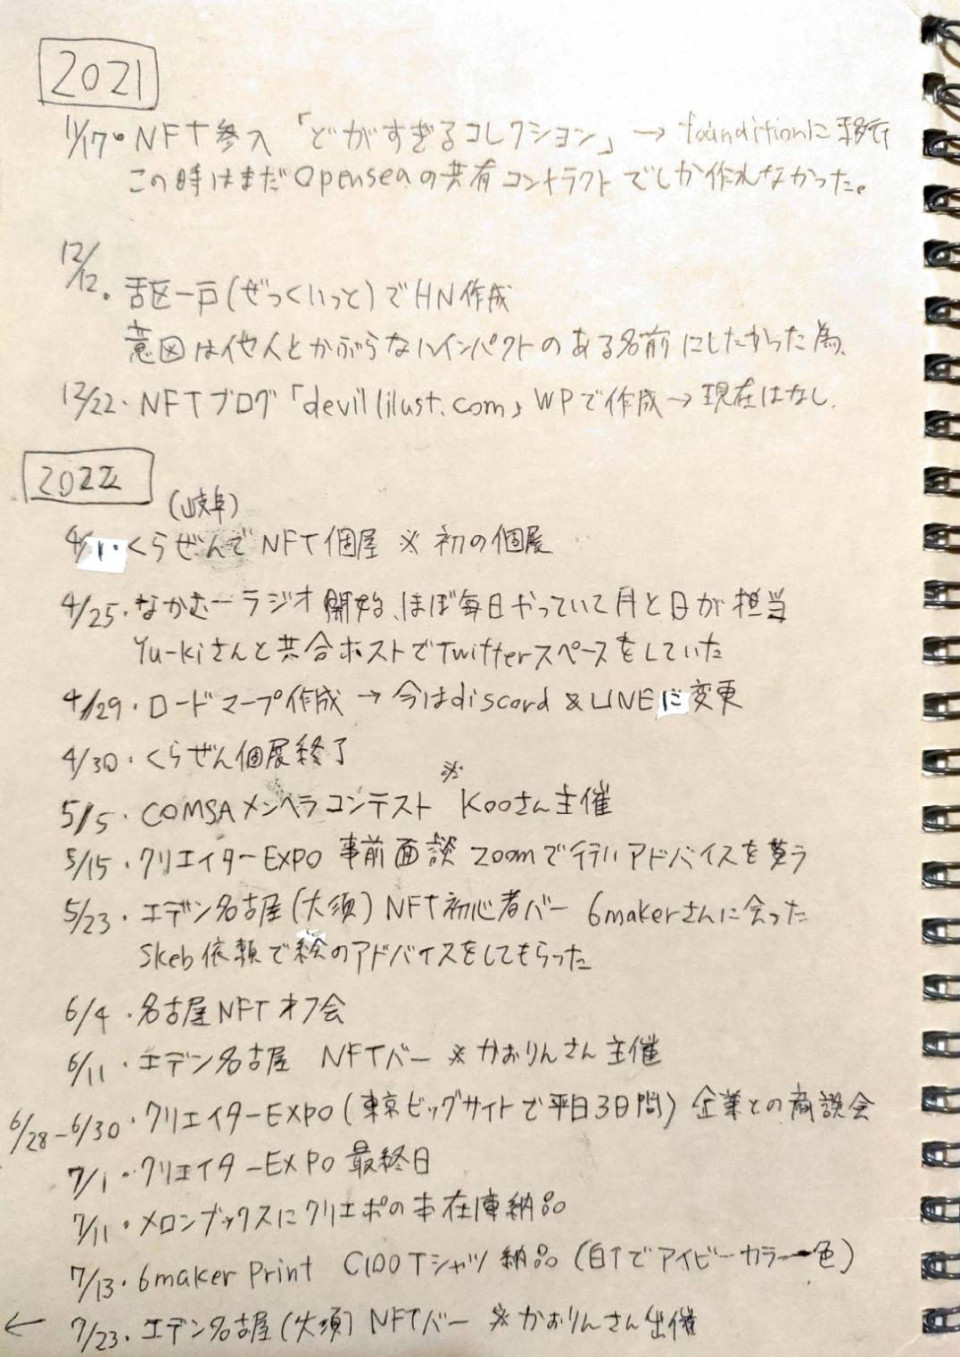 2021
11/17・NFT参入「どがすぎるコレクション」→ founditionに移行
この時はまだOpenseaの共有コントラクトでしか作れなかった。
12/12・舌区一戸(ぜっくいっと)でHN作成
意図は他人とかぶらないインパクトのある名前にしたかった為、
12/22・NFTブログ「devillilust.com」WPで作成→現在はなし.
2022
(岐阜)
4/1・くらぜんでNFT個展 ※初の個展
4/25・なかむーラジオ開始、ほぼ毎日やっていて月と日が担当
Yu-kiさんと共合ホストでTwitterスペースをしていた
4/29・ロードマップ作成 → 今はdiscord & LINEに変更
4/30・くらぜん個展終了
5/5・COMSAメンヘラコンテスト ※Kooさん主催
5/15・クリエイターEXPO 事前面談 zoomで行いアドバイスを貰う
5/23・エデン名古屋(大須)NFT初心者バー 6makerさんに会った
Skeb依頼で絵のアドバイスをしてもらった
6/4・名古屋NFTオフ会
6/11・エデン名古屋 NFTバー ※かおりんさん主催
6/28-6/30・クリエイターEXPO(東京ビッグサイトで平日3日間)企業との商談会
7/1・クリエイターEXPO 最終日
7/11・メロンブックスにクリエポの本在庫納品
7/13・6maker Print C100Tシャツ納品(白Tでアイビーカラー色)
← 7/23・エデン名古屋(大須)NFTバー ※かおりんさん主催